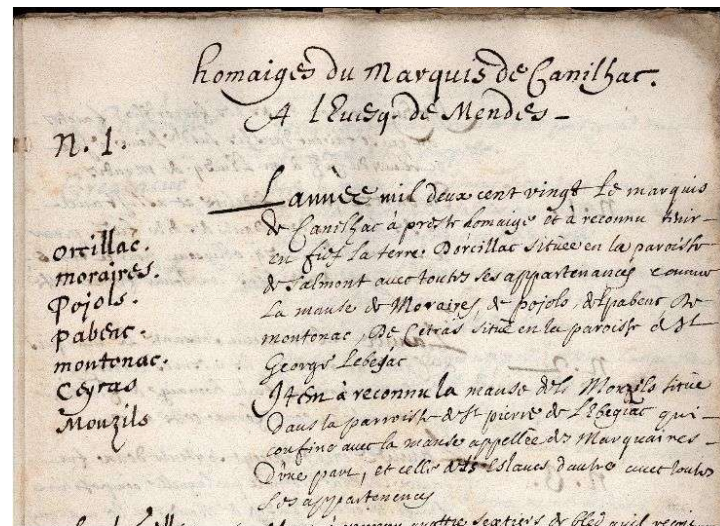 homaiges du Marquis de Canilhac.
A l'Evesq' de Mendes -
N. 1.
L'annee mil deux cent vingt Le marquis
de Canilhac à presté homaige et à reconnu tenir
en fief la terre Dorcillac située en la paroisse
de Salmont avec toutes ses appartenances comme
La manse de Moraires, de pojolo, de pabeac De
montonac, De Ceiras située en la paroisse de St
Georges Lebejac
Orcillac.
moraires.
Pojols.
pabeac.
montonac.
Ceyras
Mouzils
Item à reconnu la manse dels Mouzils située
Dans la parroisse de St pierre de Lebegiac qui
confine avec la manse appellée des Marquaires -
D'une part, et celle dels Eslaues d'autre avec toutes
Ses appartenences
quattre sextiers de bled